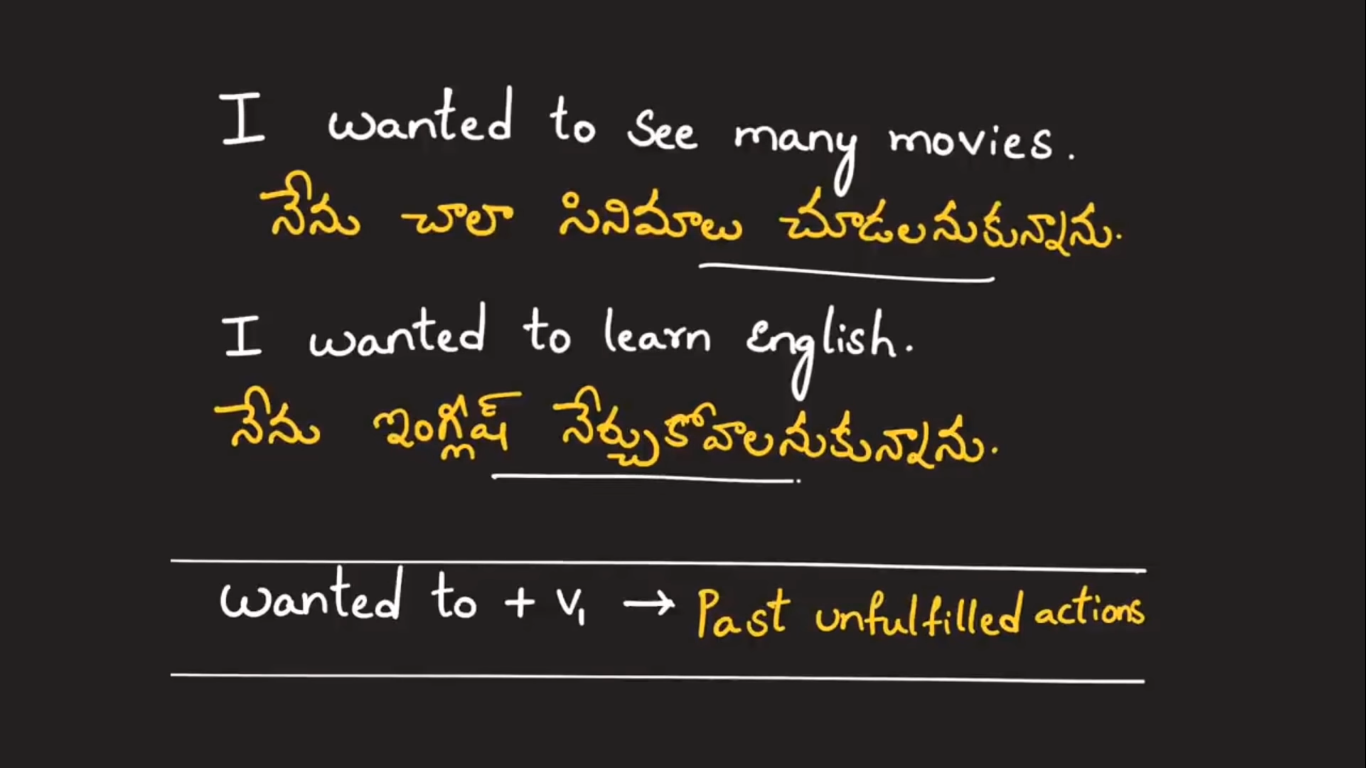 I wanted to see many movies.
నేను చాలా సినిమాలు చూడలనుకున్నాను.
I wanted to learn English.
నేను ఇంగ్లీష్ నేర్చుకోవాలనుకున్నాను.
wanted to + V₁ → Past unfulfilled actions